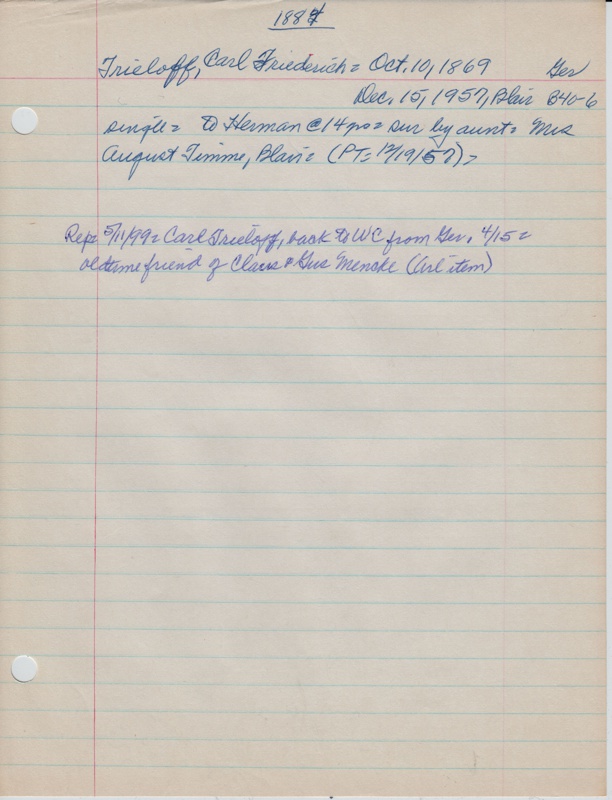 1884
Trieloff, Carl Friederich = Oct. 10, 1869 Ger
Dec. 15, 1957, Blair B40-6
single = to Herman @ 14 yo = sur by aunt = Mrs
August Timme, Blair = (PT = 12/19/57) =
Rep: 5/11/99 = Carl Trieloff, back to WC from Ger. 4/15 =
oldtime friend of Claus & Gus Mencke (Arl item)